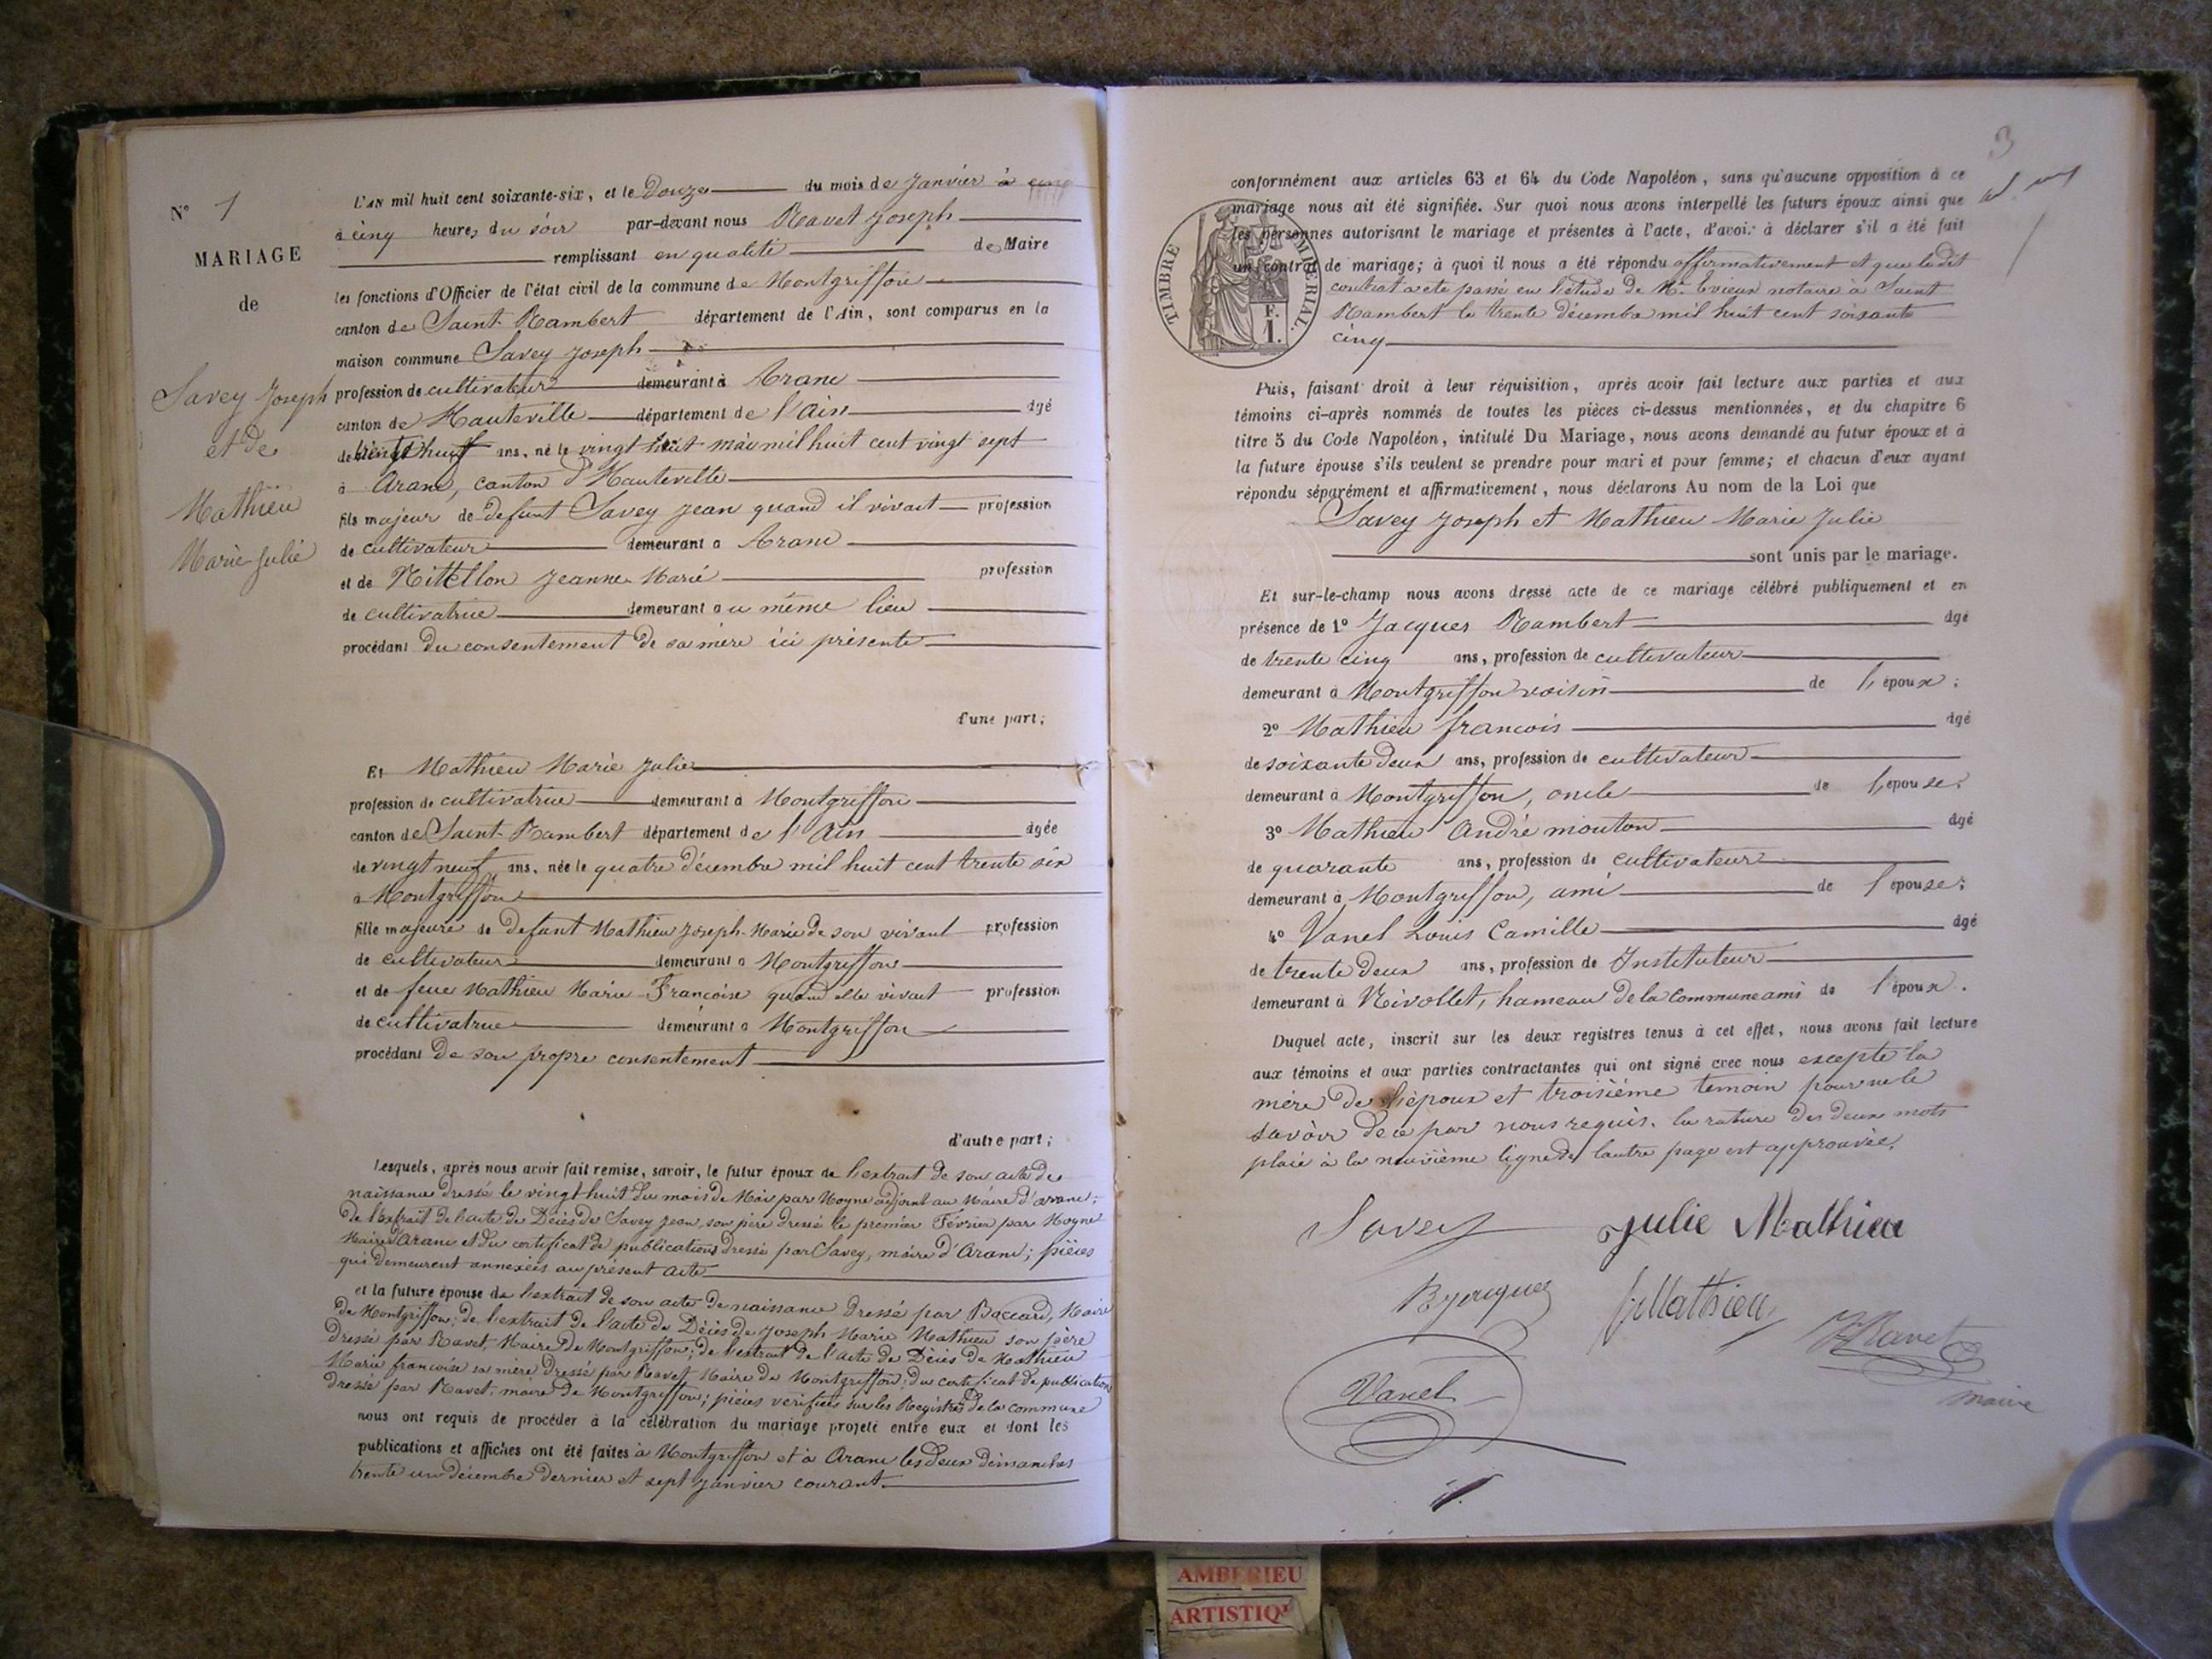 N° 1
MARIAGE
de
Savey Joseph
et de
Mathieu
Marie Julie
L'AN mil huit cent soixante-six, et le Douze du mois de Janvier à cinq
à cinq heures du soir par-devant nous Ravet Joseph
remplissant en qualité de Maire
les fonctions d'Officier de l'état civil de la commune de Montgriffon
canton de Saint-Rambert département de l'Ain, sont comparus en la
maison commune Savey Joseph
profession de cultivateur demeurant à Aranc
canton de Hauteville département de l'Ain âgé
de ans, né le vingt huit mai mil huit cent vingt sept
à Aranc, canton d'Hauteville
fils majeur de defunt Savey Jean quand il vivait profession
de cultivateur demeurant à Aranc
et de Nitellon Jeanne Marie profession
de cultivatrice demeurant au même lieu
procédant du consentement de sa mère ici présente
d'une part;
Et Mathieu Marie Julie
profession de cultivatrice demeurant à Montgriffon
canton de Saint-Rambert département de l'Ain âgée
de vingt neuf ans, née le quatre décembre mil huit cent trente six
à Montgriffon
fille majeure de defunt Mathieu Joseph-Marie de son vivant profession
de cultivateur demeurant à Montgriffon
et de feue Mathieu Marie Françoise quand elle vivait profession
de cultivatrice demeurant à Montgriffon
procédant de son propre consentement
d'autre part;
Lesquels, après nous avoir fait remise, savoir, le futur époux de l'extrait de son acte de
naissance dressé le vingt huit du mois de Mai par Moyne adjoint au Maire d'aranc;
de l'extrait de l'acte de Décès de Savey Jean, son père dressé le premier Février par Moyne
Maire d'Aranc et du certificat de publications dressé par Savey, maire d'Aranc; pièces
qui demeurent annexées au présent acte
et la future épouse de l'extrait de son acte de naissance dressé par Baccard, Maire
de Montgriffon; de l'extrait de l'acte de Décès de Joseph Marie Mathieu son père
dressé par Ravet, Maire de Montgriffon; de l'extrait de l'acte de Décès de Mathieu
Marie françoise sa mère dressé par Ravet Maire de Montgriffon; du certificat de publication
dressé par Ravet, maire de Montgriffon; pièces vérifiées sur les Registres de la commune
nous ont requis de procéder à la célébration du mariage projeté entre eux et dont les
publications et affiches ont été faites à Montgriffon et à Aranc les deux dimanches
trente un décembre dernier et sept janvier courant.
3
conformément aux articles 63 et 64 du Code Napoléon, sans qu'aucune opposition à ce
mariage nous ait été signifiée. Sur quoi nous avons interpellé les futurs époux ainsi que
les personnes autorisant le mariage et présentes à l'acte, d'avoir à déclarer s'il a été fait
un contrat de mariage; à quoi il nous a été répondu affirmativement et que ledit
contrat a été passé en l'étude de Me notaire à Saint
Rambert le trente décembre mil huit cent soixante
cinq
TIMBRE IMPÉRIAL.
F.
1.
Puis, faisant droit à leur réquisition, après avoir fait lecture aux parties et aux
témoins ci-après nommés de toutes les pièces ci-dessus mentionnées, et du chapitre 6
titre 5 du Code Napoléon, intitulé Du Mariage, nous avons demandé au futur époux et à
la future épouse s'ils veulent se prendre pour mari et pour femme; et chacun d'eux ayant
répondu séparément et affirmativement, nous déclarons Au nom de la Loi que
Savey Joseph et Mathieu Marie Julie
sont unis par le mariage.
Et sur-le-champ nous avons dressé acte de ce mariage célébré publiquement et en
présence de 1° Jacques Rambert âgé
de trente cinq ans, profession de cultivateur
demeurant à Montgriffon voisin de l'époux;
2° Mathieu françois âgé
de soixante deux ans, profession de cultivateur
demeurant à Montgriffon, oncle de l'épouse;
3° Mathieu André mouton âgé
de quarante ans, profession de cultivateur
demeurant à Montgriffon, ami de l'épouse;
4° Vanel Louis Camille âgé
de trente deux ans, profession de Instituteur
demeurant à Nivollet, hameau de la commune ami de l'époux.
Duquel acte, inscrit sur les deux registres tenus à cet effet, nous avons fait lecture
aux témoins et aux parties contractantes qui ont signé avec nous excepté la
mère de l'époux et troisième temoin pour ne le
savoir de ce par nous requis. la rature des deux mots
placé à la neuvième ligne de l'autre page est approuvée.
Savey Julie Mathieu
R Jacques fs Mathieu J Ravet
maire
Vanel
AMBERIEU
ARTISTIQ